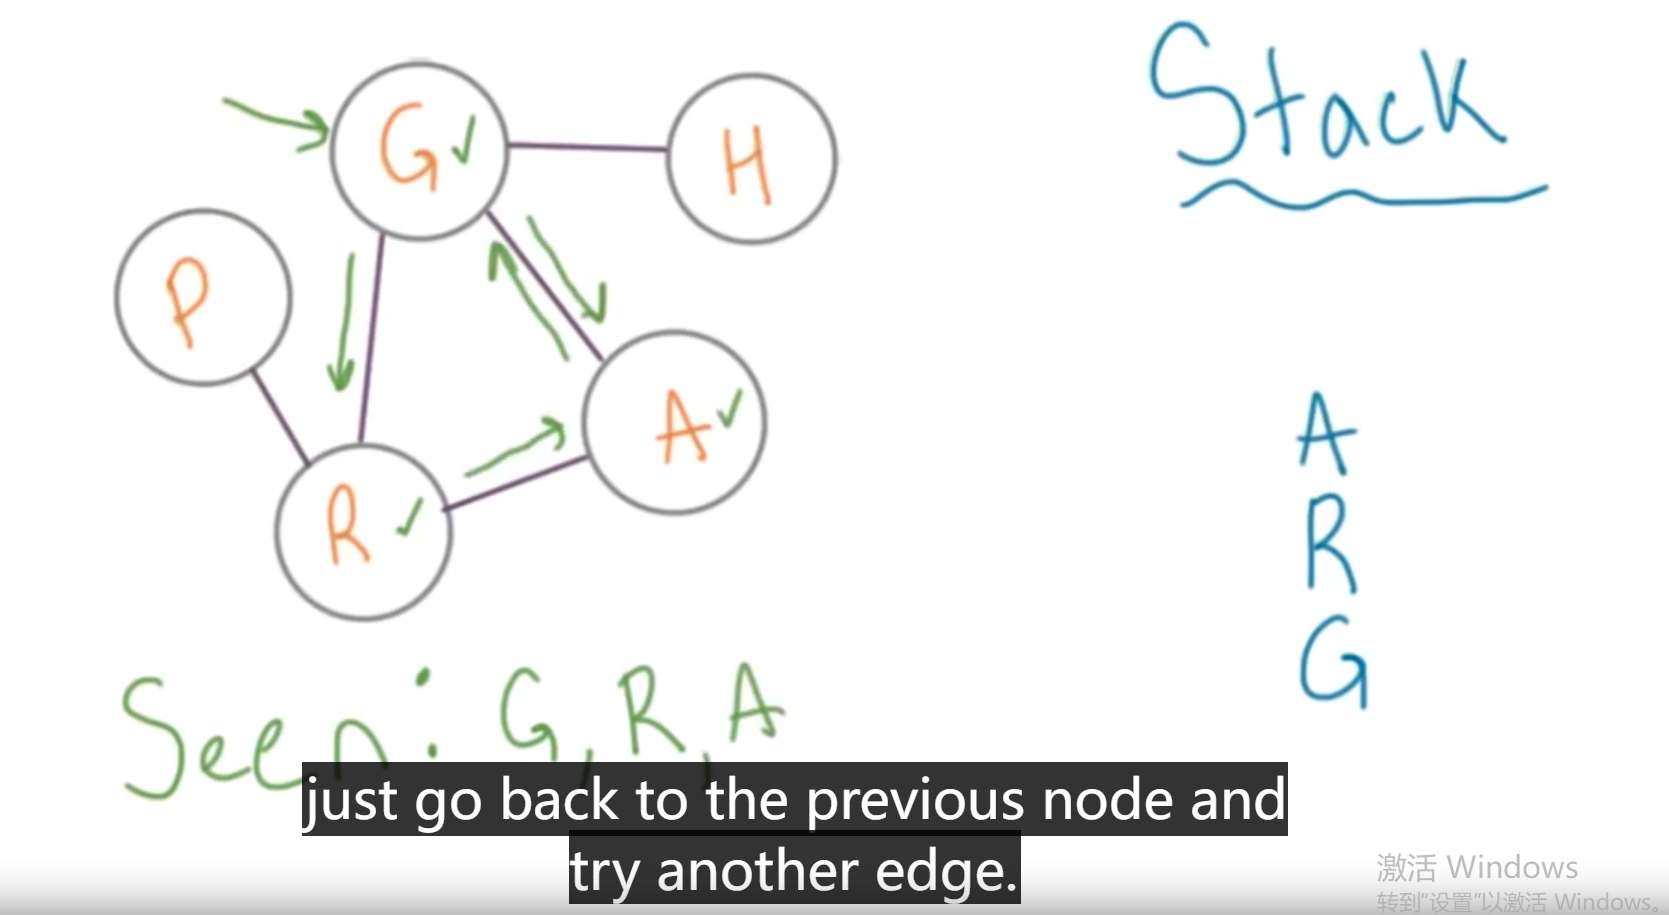 Stack
G✓
H
P
A✓
R✓
A
R
G
Seen: G, R, A
just go back to the previous node and
try another edge.
激活 Windows
转到“设置”以激活 Windows。